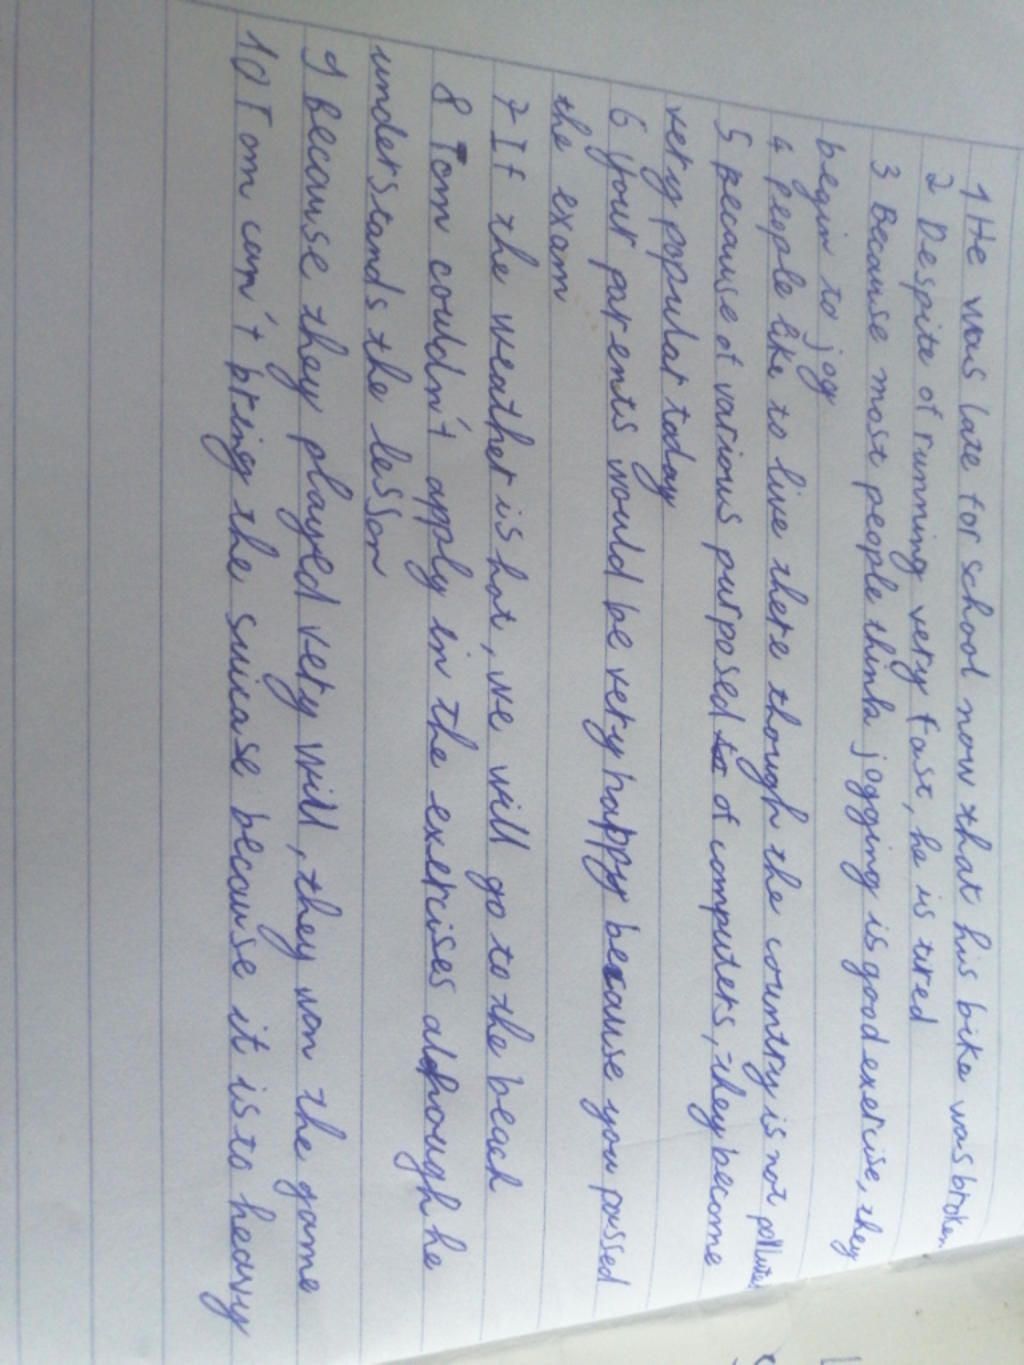 1 He was late for school now that his bike was broken
2 Despite of running very fast, he is tired
3 Because most people think jogging is good exercise, they
begin to jog
4 People like to live there though the country is not polluted
5 because of various purposed of computers, they become
very popular today
6 your parents would be very happy because you passed
the exam
7 If the weather is hot, we will go to the beach
8 Tom couldn't apply in the exercises although he
understands the lesson
9 because they played very will, they won the game
10 Tom can't bring the suicase because it is to heavy